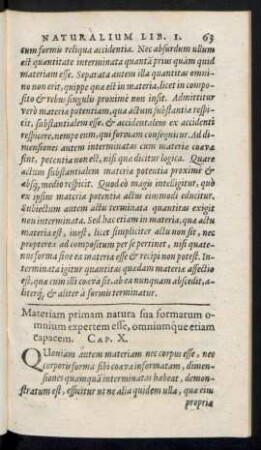 NATURALIUM LIB. I. 63
cum formis reliqua accidentia. Nec absurdum ullum
est quantitate interminata quanta prius quam quid
materiam esse. Separata autem illa quantitas omni-
no non erit, quippe quæ est in materia, licet in compo-
sito & rebus singulis proximè non insit. Admittitur
verò materia potentiam, quæ actum substantiæ respi-
cit, substantialem esse, & accidentalem ex accidenti
respicere, nempe eum, qui formam consequitur. Ad di-
mensiones autem interminatas cum materiæ coævæ
sint, potentia non est, nisi qua dicitur logica. Quare
actum substantialem materia potentia proximè &
absq; medio respicit. Quod eò magis intelligitur, quò
ex ipsius materiæ potentia actus eiusmodi educitur.
Subiectum autem actu terminata quantitas exigit
non interminata. Sed hæc etiam in materia, quæ actu
materia est, inest, licet simpliciter actu non sit, nec
propterea ad compositum per se pertinet, nisi quate-
nus forma sine ea materia esse & recipi non potest. In-
terminata igitur quantitas quædam materiæ affectio
est, quæ cum illi coæva sit, ab ea nunquam abscedit, a-
literq; & aliter à formis terminatur.
Materiam primam natura sua formarum
omnium expertem esse, omniumque etiam
capacem. CAP. X.
QUoniam autem materiam nec corpus esse, nec
corporis forma sibi coæva informatam, dimen-
siones quamquã interminatas habeat, demon-
stratum est, efficitur ut ne alia quidem ulla, quæ eius
propria